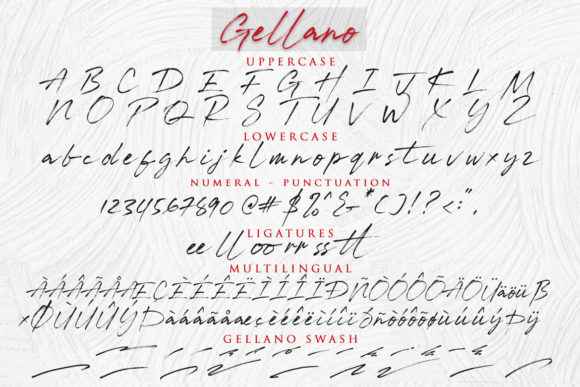 Gellano
UPPERCASE
A B C D E F G H I J K L M
N O P Q R S T U V W X Y Z
LOWERCASE
a b c d e f g h i j k l m n o p q r s t u v w x y z
NUMERAL - PUNCTUATION
1234567890 @ # $ % ^ & * ( ) ! ? < : " .
LIGATURES
ee ll oo rr ss tt
MULTILINGUAL
ÀÁÂÃÄÅÆÇÈÉÊËÌÍÎÏÐÑÒÓÔÕÖÄÖÜäöüß
×ØÙÚÛÜÝÞàáâãäåæçèéêëìíîïðñòóôõöùúûüýÞÿ
GELLANO SWASH